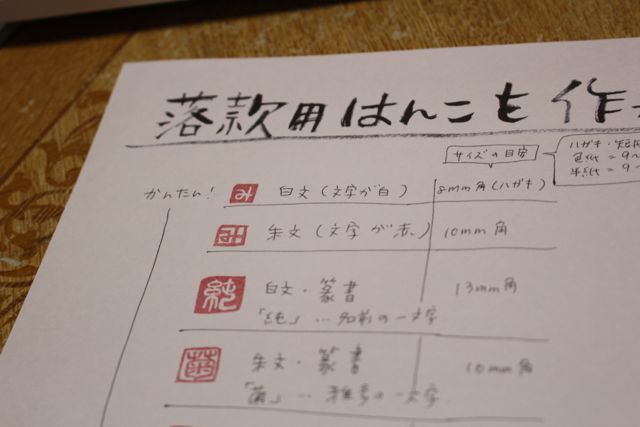 落款用はんこを作
サイズの目安
ハガキ・短
色紙=9
半紙=9
かんたん! み 白文(文字が白) 8mm角(ハガキ)
み 朱文(文字が赤) 10mm角
純 白文・篆書 13mm角
「純」…名前の一文字
菌 朱文・篆書 10mm角
「菌」…雅号の一文字